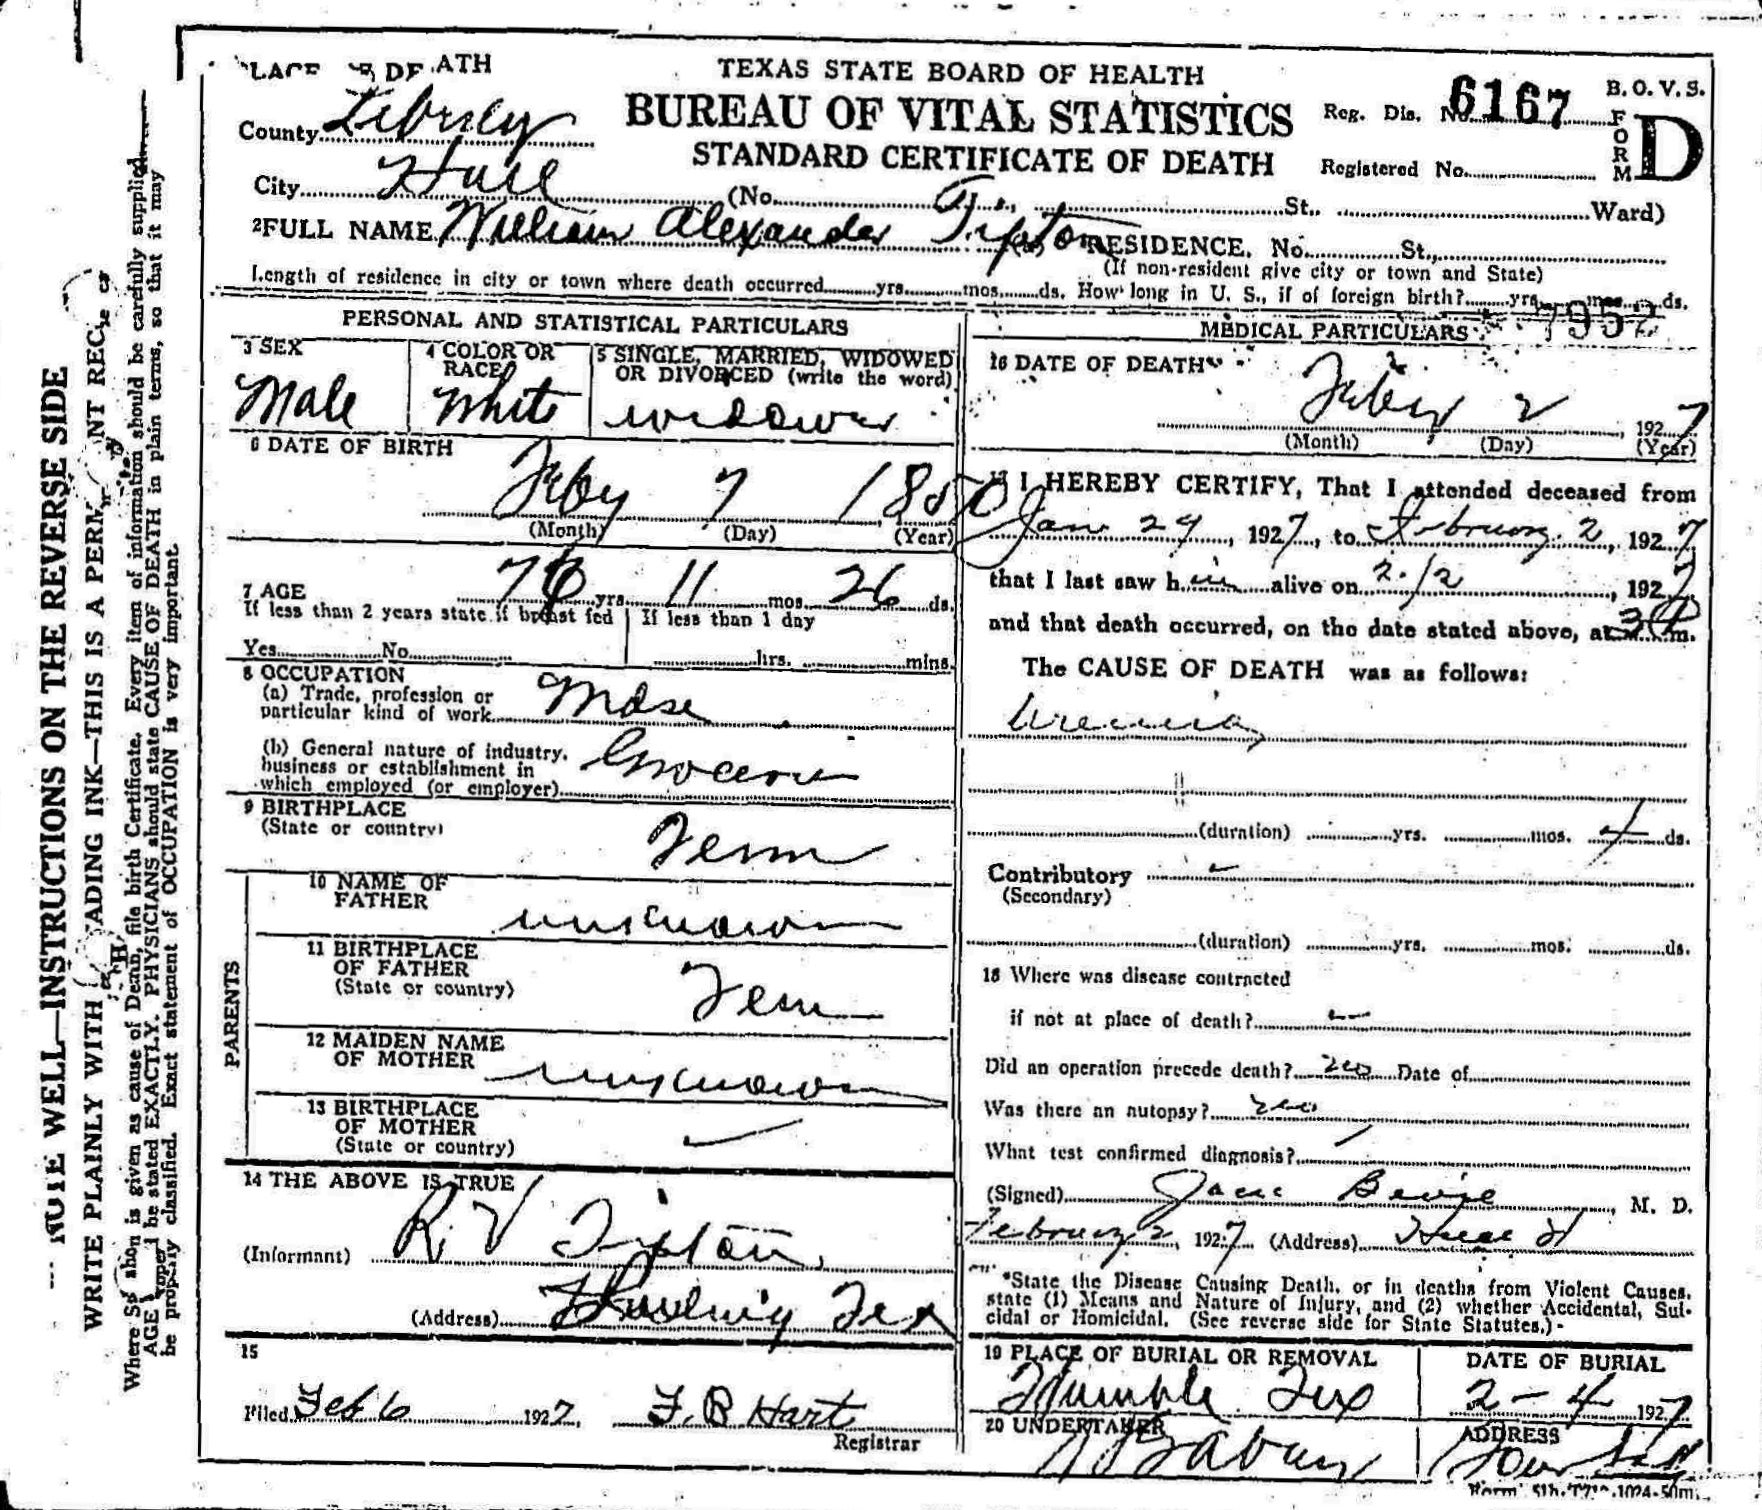 PLACE OF DEATH
TEXAS STATE BOARD OF HEALTH
BUREAU OF VITAL STATISTICS
STANDARD CERTIFICATE OF DEATH
Reg. Dis. No. 6167
B. O. V. S.
FORM D
Registered No.
County Liberty
City Hull (No. St., Ward)
2 FULL NAME William Alexander Tipton (a) RESIDENCE. No. St.,
(If non-resident give city or town and State)
Length of residence in city or town where death occurred yrs. mos. ds. How long in U. S., if of foreign birth? yrs. mos. ds.
7952
PERSONAL AND STATISTICAL PARTICULARS
3 SEX
Male
4 COLOR OR RACE
White
5 SINGLE, MARRIED, WIDOWED
OR DIVORCED (write the word)
widower
6 DATE OF BIRTH
Feby 7 1850
(Month) (Day) (Year)
7 AGE 76 yrs. 11 mos. 26 ds.
If less than 2 years state if breast fed
If less than 1 day
Yes No
hrs. mins.
8 OCCUPATION
(a) Trade, profession or
particular kind of work Mdse
(b) General nature of industry,
business or establishment in
which employed (or employer) Grocery
9 BIRTHPLACE
(State or country)
Tenn
PARENTS
10 NAME OF
FATHER
unknown
11 BIRTHPLACE
OF FATHER
(State or country)
Tenn
12 MAIDEN NAME
OF MOTHER
unknown
13 BIRTHPLACE
OF MOTHER
(State or country)
14 THE ABOVE IS TRUE
(Informant) R. V Tipton
(Address) Tex
15
Filed Feb 6 1927, F. R Hart
Registrar
MEDICAL PARTICULARS
16 DATE OF DEATH
Feby 2 1927
(Month) (Day) (Year)
17 I HEREBY CERTIFY, That I attended deceased from
Jan 29, 1927, to February 2, 1927,
that I last saw him alive on 2/2, 1927,
and that death occurred, on the date stated above, at 3 P m.
The CAUSE OF DEATH was as follows:
Uremia
(duration) yrs. mos. 4 ds.
Contributory
(Secondary)
(duration) yrs. mos. ds.
18 Where was disease contracted
if not at place of death?
Did an operation precede death? no Date of
Was there an autopsy? no
What test confirmed diagnosis?
(Signed) M. D.
February 2, 1927 (Address) Hull
*State the Disease Causing Death, or in deaths from Violent Causes,
state (1) Means and Nature of Injury, and (2) whether Accidental, Sui-
cidal or Homicidal. (See reverse side for State Statutes.)
19 PLACE OF BURIAL OR REMOVAL
Humble Tex
DATE OF BURIAL
2-4 1927
20 UNDERTAKER
ADDRESS
NOTE WELL—INSTRUCTIONS ON THE REVERSE SIDE
WRITE PLAINLY WITH FADING INK—THIS IS A PERMANENT RECORD
Where is given as cause of Death, file birth Certificate. Every item of information should be carefully supplied.
AGE should be stated EXACTLY. PHYSICIANS should state CAUSE OF DEATH in plain terms, so that it may
be properly classified. Exact statement of OCCUPATION is very important.